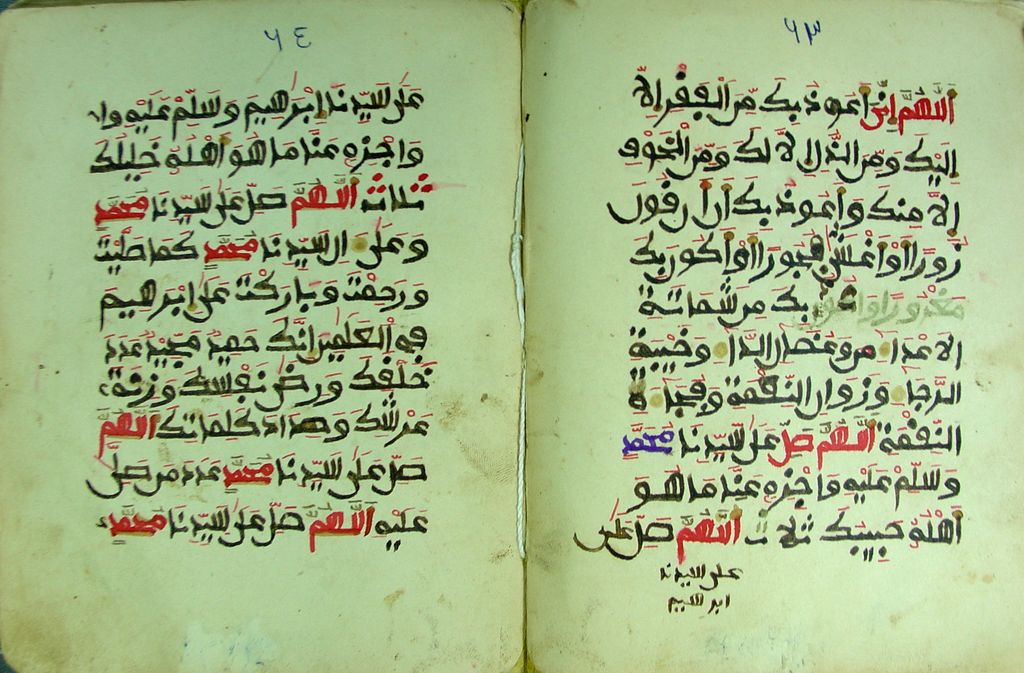 ٦٣
اللهم اني اعوذ بك من الفقر الا
اليك ومن الذل الا لك ومن الخوف
الا منك واعوذ بك ان اقول
زورا او اغشى فجورا او اكون بك
مغرورا واعوذ بك من شماتة
الاعداء ومن عضال الداء وخيبة
الرجاء وزوال النعمة وفجاءة
النقمة اللهم صل على سيدنا محمد
وسلم عليه واجزه عنا ما هو
اهله حبيبك ثلاث اللهم صل على
على سيدنا
ابرهيم
٦٤
على سيدنا ابرهيم وسلم عليه وا
واجزه عنا ما هو اهله خليلك
ثلاث اللهم صل على سيدنا محمد
وعلى ال سيدنا محمد كما صليت
ورحمت وباركت على ابرهيم
في العلمين انك حميد مجيد عدد
خلفك ورضى نفسك وزنة
عرشك ومداد كلماتك اللهم
صل على سيدنا محمد عدد من صلى
عليه اللهم صل على سيدنا محمد